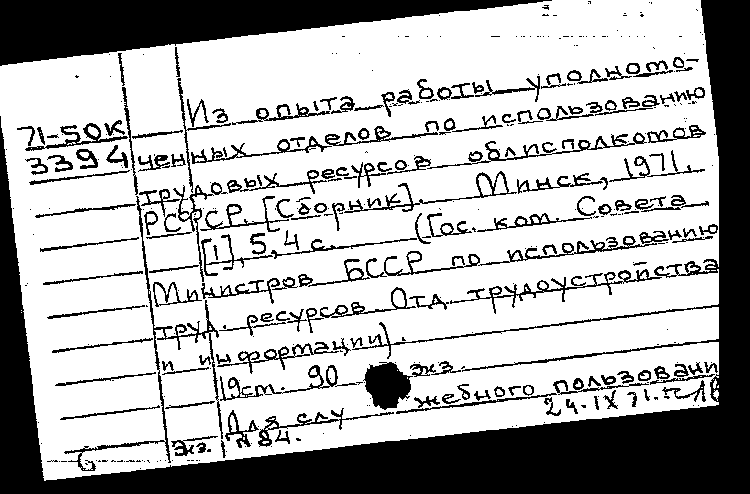 71-50К
3394
Из опыта работы уполномо-
ченных отделов по использованию
трудовых ресурсов облисполкомов
РСФСР. [Сборник]. Минск, 1971.
[1], 5, 4 с. (Гос. ком. Совета
Министров БССР по использованию
труд. ресурсов Отд. трудоустройства
и информации).
19 ст. 90 экз.
Для служебного пользовани
Экз. №84.
24.IX 71.
б